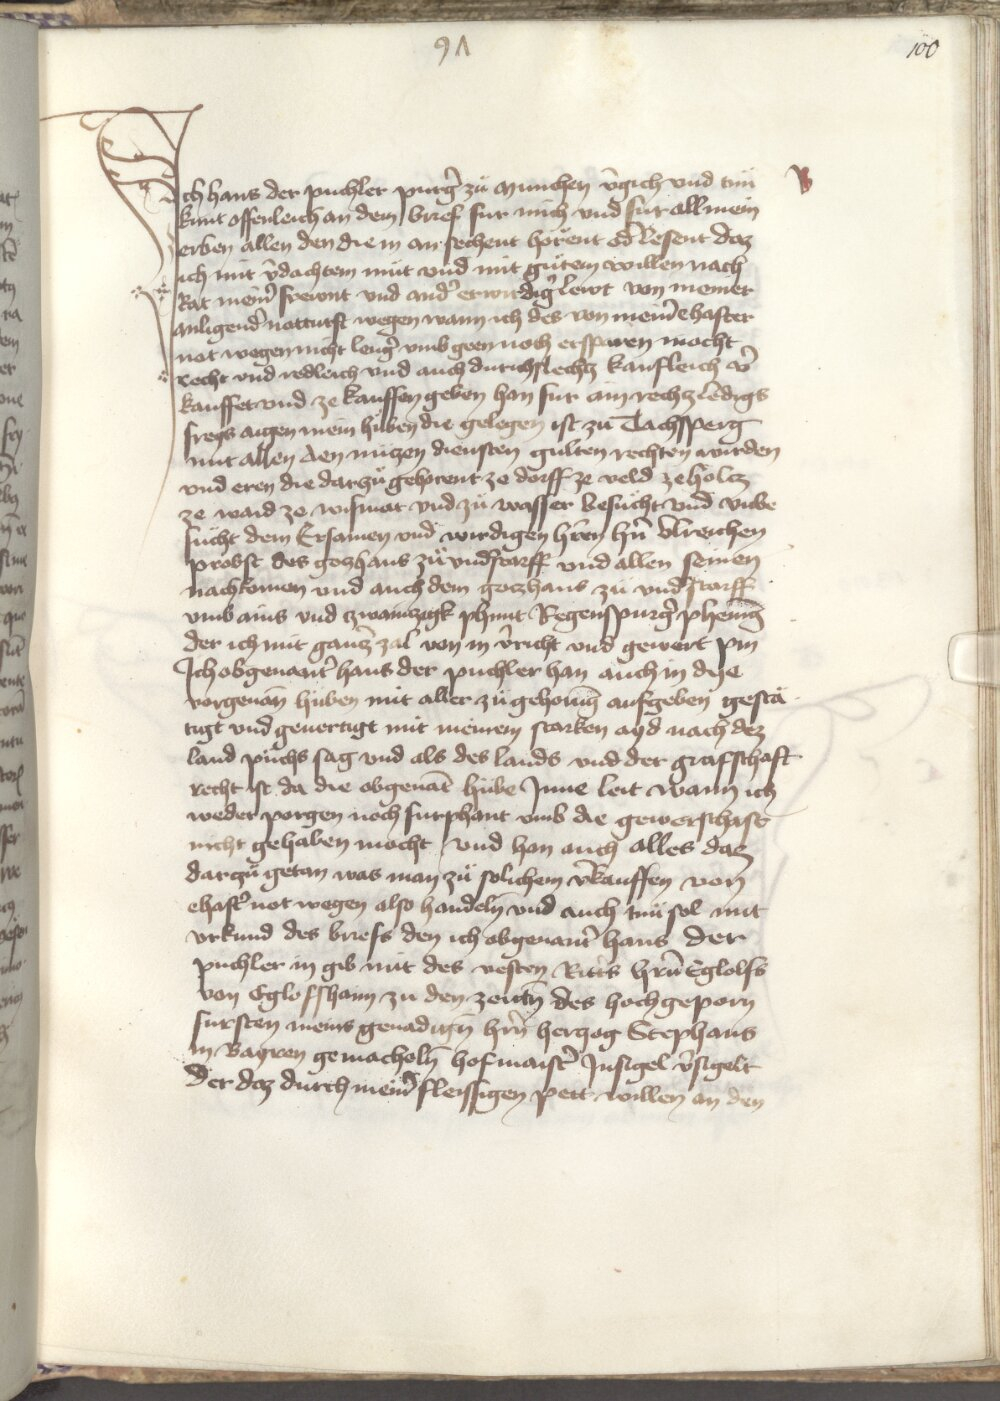 91
100
Ich hans der puchler purg̉ zů Munchen v̉gich vnd tuͤn
kunt offenleich an dem brief fur mich vnd fur all mein
erben allen den die in an sechent hoͤrent od̉ lesent daz
ich mit v̉dachtem můt vnd mit gůtem willen nach
Rat meiner̉ frewnt vnd and̉ erwirdig̉ lewt von meiner
anligend̉ notturft wegen wann ich des von meiner̉ Ehafter
not wegen nicht leng̉ vmb geen noch ersparen mocht
recht vnd redleich vnd auch durichslechtz kaufleich v̉
kauffet vnd ze kauffen geben han fur ain rechz ledigs
freys aigen mein hůben die gelegen ist zů Tachsperg
mit allen den nützen diensten gülten rechten wirden
vnd eren die darzů gehorent ze dorff ze veld ze holtz
ze waid ze wismat vnd zů wasser besůcht vnd vnbe
sůcht dem Ersamen vnd wirdigen herren hern̄ Vlreichen
probst des gotzhaus zů vnd̉starff vnd allen seinen
nachkomen vnd auch dem gotzhaus zů vnd̉starff
vmb ains vnd zwaintzigk phunt Regenspurg̉ phening
der ich mit gantz̉ zal von in v̉richt vnd gewert pin
Ich obgenant̉ hans der puchler han auch in dye
vorgenan̄ hůben mit aller zů gehorung aufgeben gestä
tigt vnd geuertigt mit meinem starken ayd nach dez
land půchs sag vnd als des lands vnd der grafschaft
recht ist da die obgenāt hůbe Inne leit wann ich
weder porgen noch furphant vmb die gewerschaft
nicht gehaben mocht vnd han auch alles daz
darzů getan was man zů solichem v̉kauffen von
ehaft̉ not wegen also handeln̄ vnd auch tuͤn sol mit
vrkund des briefs den ich obgenant̉ hans der
puchler in gib mit des vesten Ritters hern̄ Eglolfs
von Egloffshaim zu den zeiten̄ des hochgeporn
fursten meins genadign̄ hern̄ hertzog Stephans
in Bayren gemacheln̄ hofmaister̉ Insigel v̉sigelt
der daz durch meiner̉ fleissigen pett willen an den